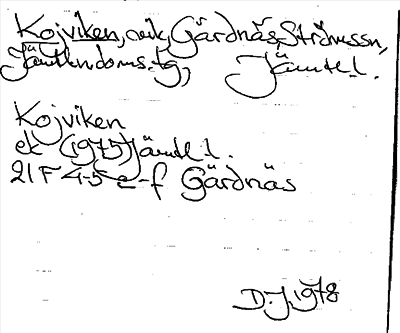 Kojviken, vik, Gärdnäs, Ströms sn,
Jämtlands domsg, Jämtl.
Kojviken
ek (1975) Jämtl l.
21F 4-5 e-f Gärdnäs
D.J. 1978